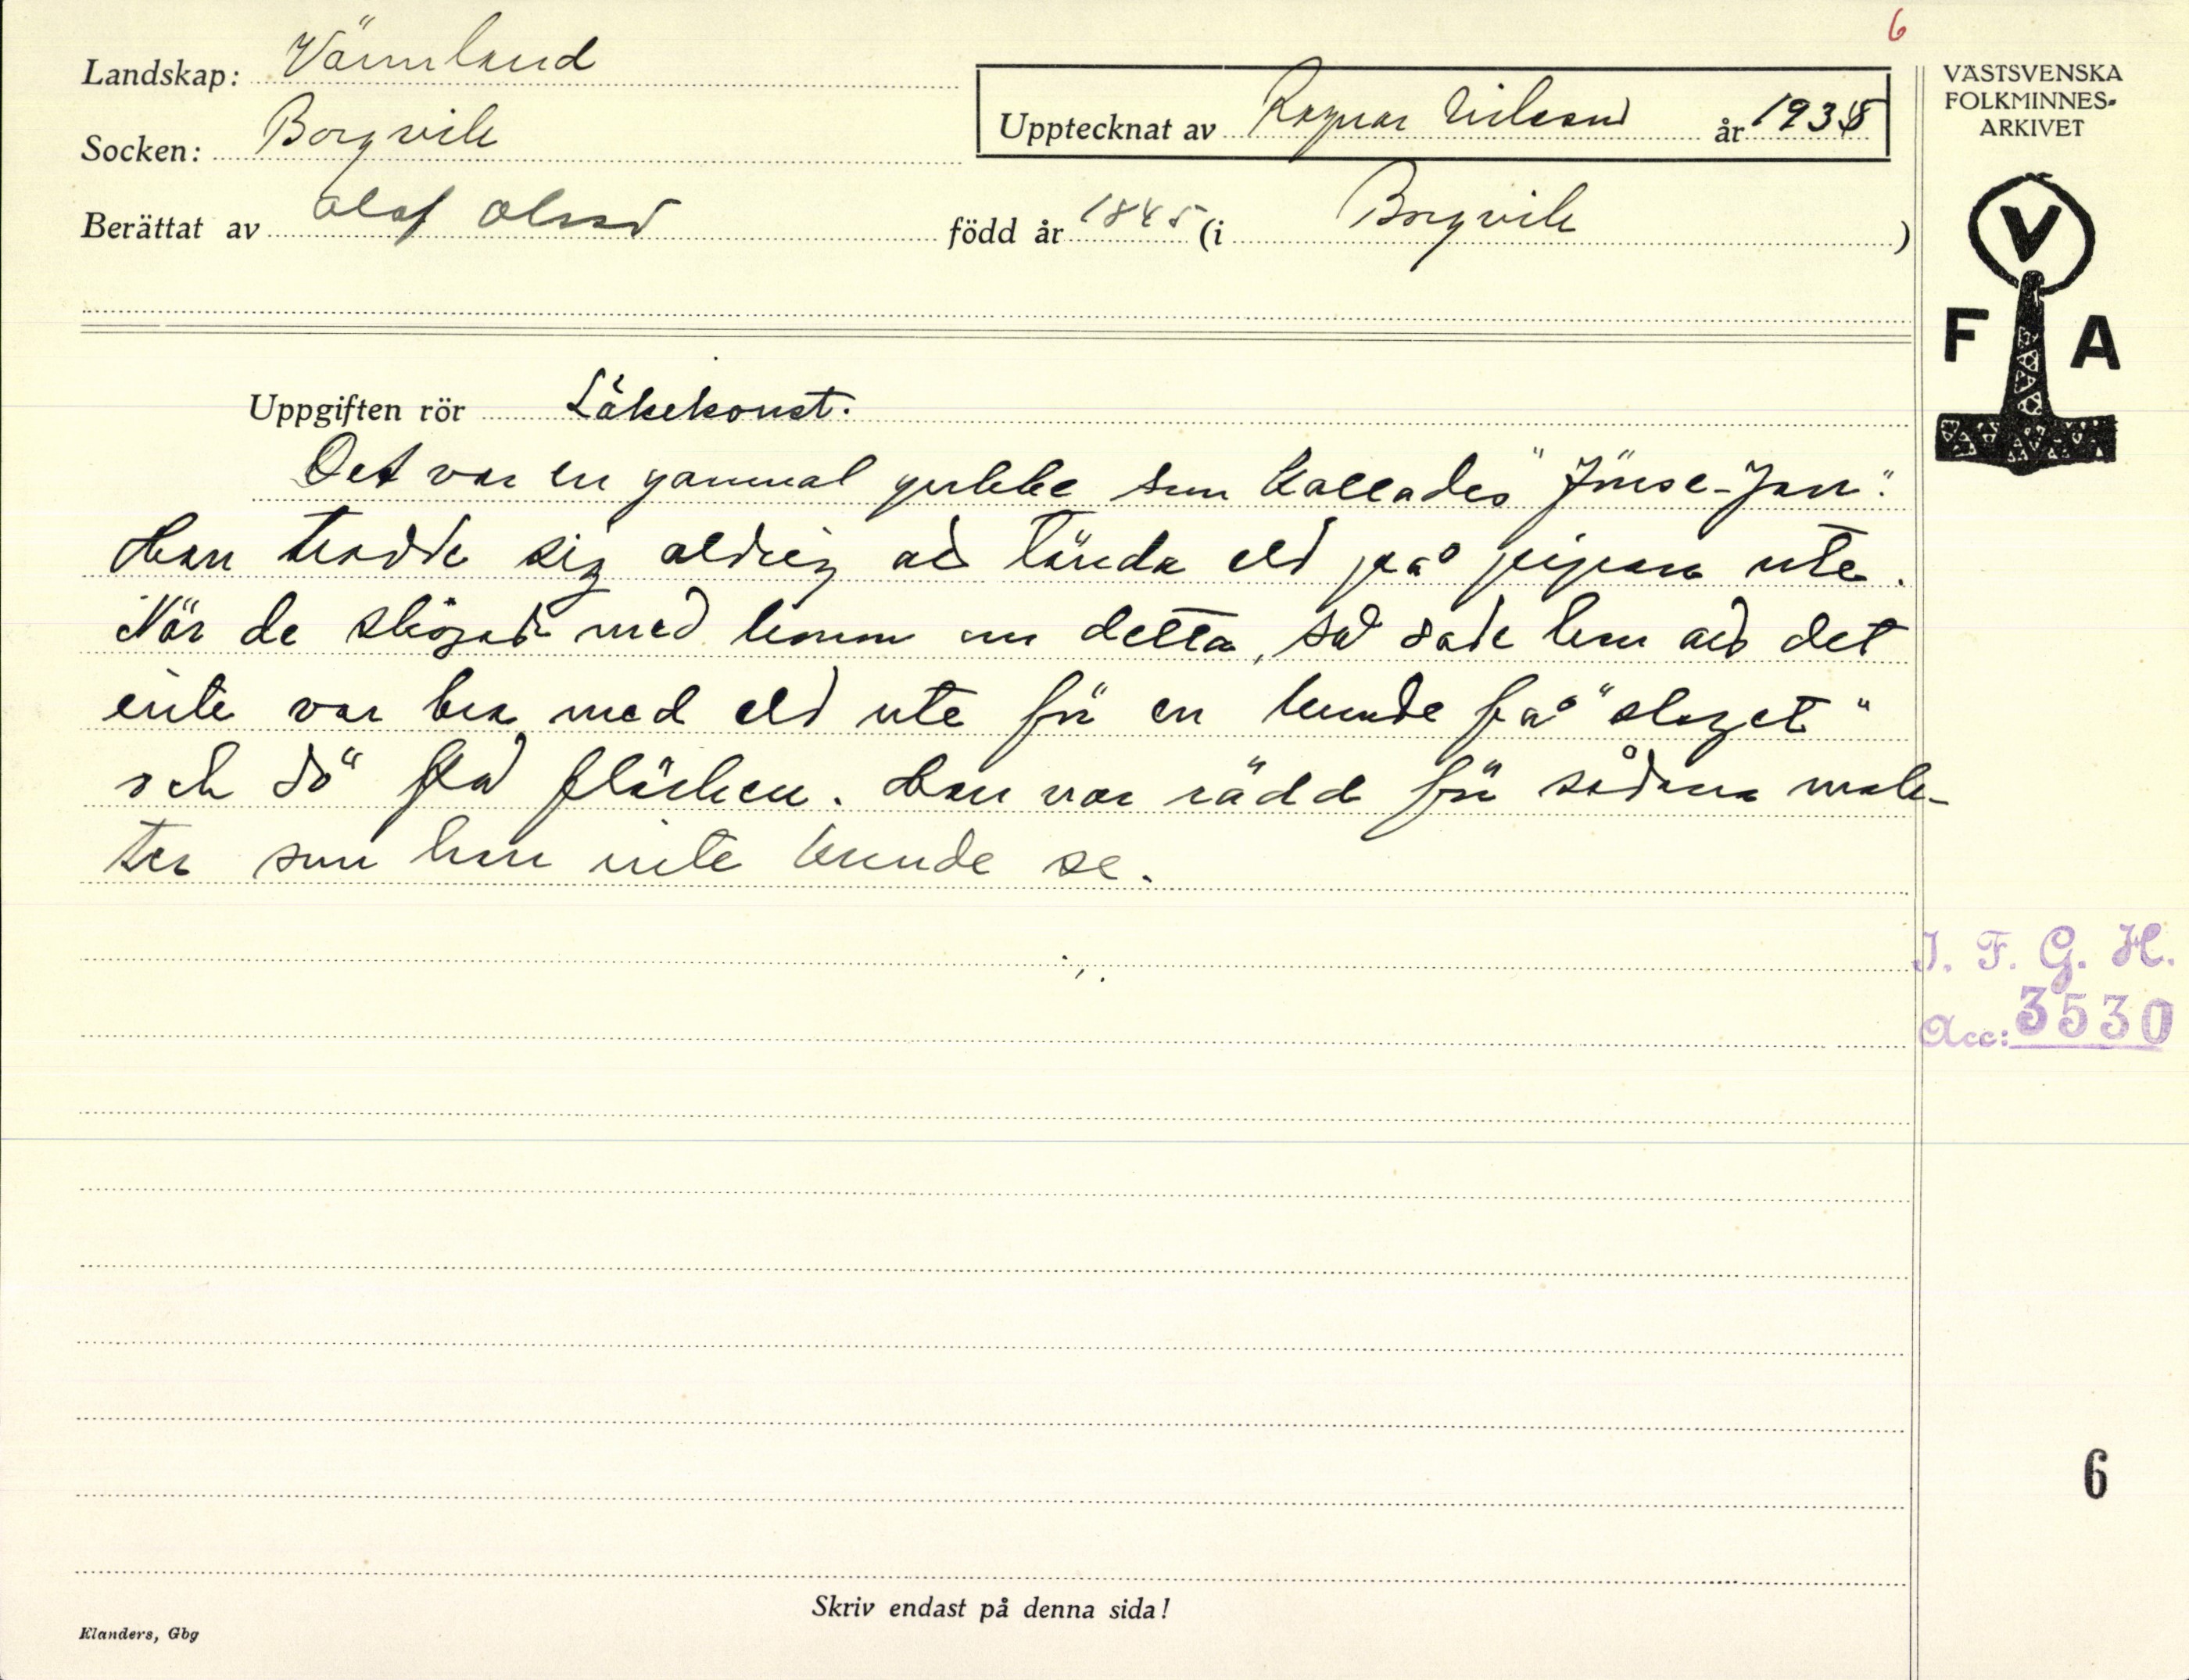 6
Landskap: Värmland
Socken: Borgvik
Upptecknat av Ragnar Nilsson år 1935
VÄSTSVENSKA
FOLKMINNES-
ARKIVET
Berättat av Olaf Olsson född år 1845 (i Borgvik )
V
F A
Uppgiften rör Läkekonst.
Det var en gammal gubbe som kallades "Jönse-Jan".
Han trodde sig aldrig att tända eld på pipan ute.
När de skojade med honom om detta, så sade han att det
inte var bra med eld ute för en kunde få "slaget"
och dö på fläcken. Han var rädd för sådana mak-
ter som han inte kunde se.
I. F. G. H.
Acc: 3530
6
Skriv endast på denna sida!
Elanders, Gbg